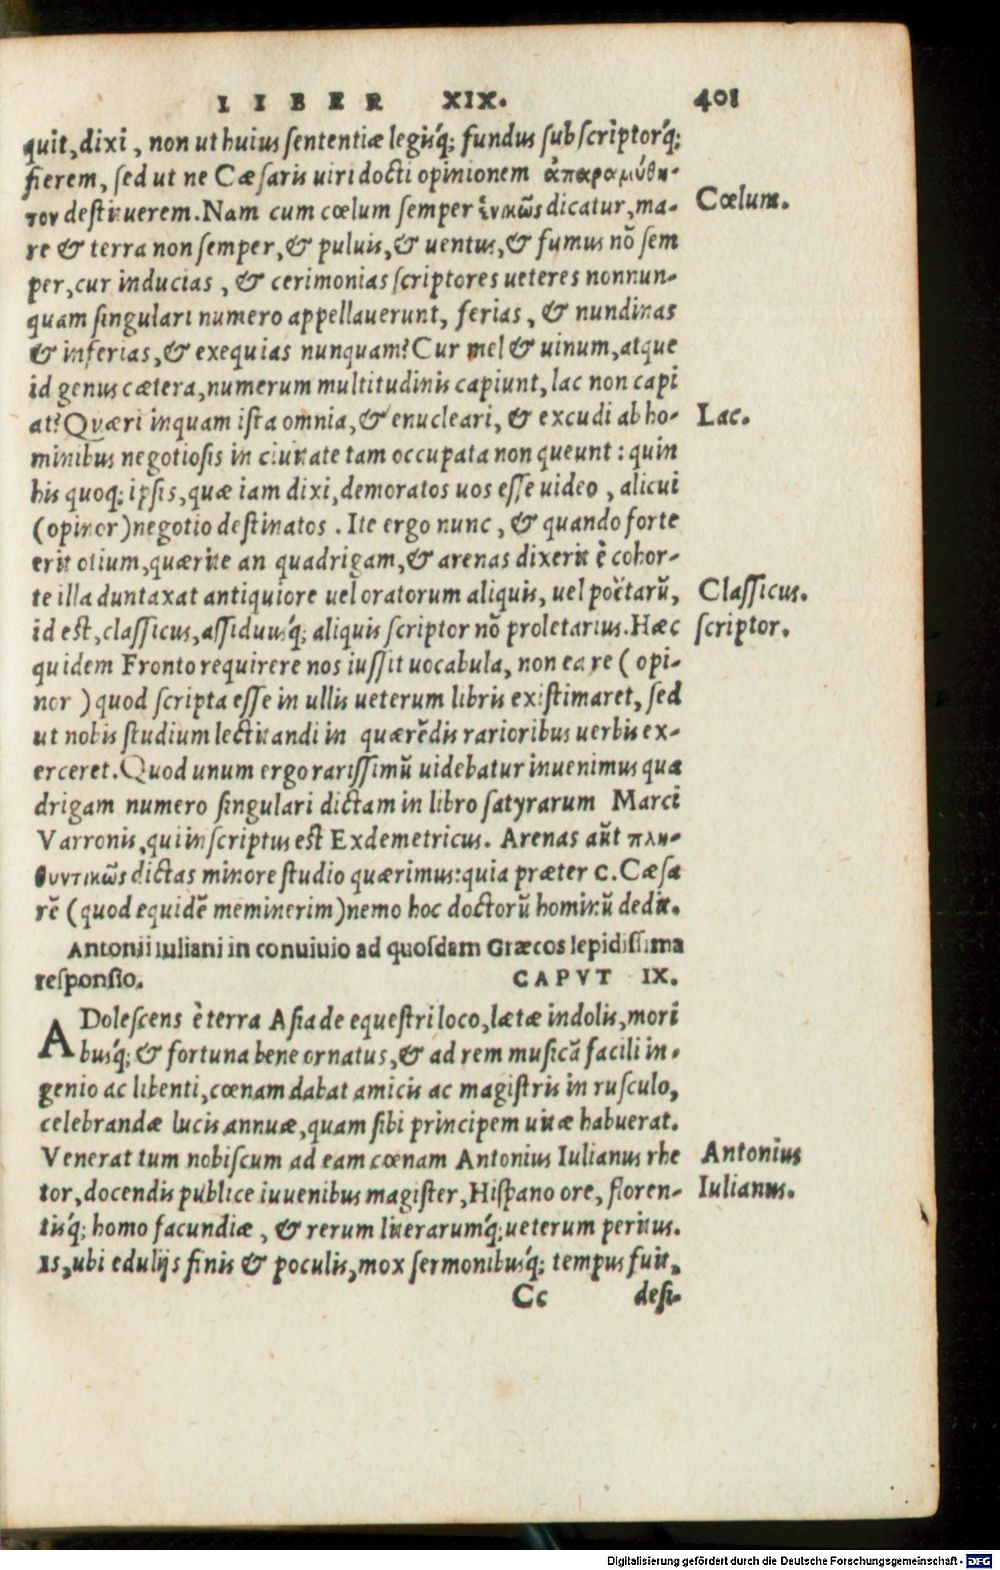 LIBER XIX. 401
quit, dixi, non ut huius sententiæ legisq́; fundus subscriptorq́;
fierem, sed ut ne Cæsaris uiri docti opinionem ἀπαραμύθη-
τον destituerem. Nam cum cœlum semper ἑνικῶς dicatur, ma-
Cœlum.
re & terra non semper, & puluis, & uentus, & fumus nõ sem
per, cur inducias, & cerimonias scriptores ueteres nonnun-
quam singulari numero appellauerunt, ferias, & nundinas
& inferias, & exequias nunquam? Cur mel & uinum, atque
id genus cætera, numerum multitudinis capiunt, lac non capi
at? Quæri inquam ista omnia, & enucleari, & excudi ab ho-
Lac.
minibus negotiosis in ciuitate tam occupata non queunt: quin
his quoq; ipsis, quæ iam dixi, demoratos uos esse uideo, alicui
(opinor) negotio destinatos. Ite ergo nunc, & quando forte
erit otium, quærite an quadrigam, & arenas dixerit è cohor-
te illa duntaxat antiquiore uel oratorum aliquis, uel poëtarũ,
Classicus.
id est, classicus, assiduusq́; aliquis scriptor nõ proletarius. Hæc
scriptor.
quidem Fronto requirere nos iussit uocabula, non ea re (opi-
nor) quod scripta esse in ullis ueterum libris existimaret, sed
ut nobis studium lectitandi in quærẽdis rarioribus uerbis ex-
erceret. Quod unum ergo rarissimũ uidebatur inuenimus qua
drigam numero singulari dictam in libro satyrarum Marci
Varronis, qui inscriptus est Exdemetricus. Arenas aũt πλη-
θυντικῶς dictas minore studio quærimus: quia præter C. Cæsa
rẽ (quod equidẽ meminerim) nemo hoc doctorũ hominũ dedit.
Antonii Iuliani in conuiuio ad quosdam Græcos lepidissima
responsio. CAPVT IX.
ADolescens è terra Asia de equestri loco, lætæ indolis, mori
busq́; & fortuna bene ornatus, & ad rem musicã facili in-
genio ac libenti, cœnam dabat amicis ac magistris in rusculo,
celebrandæ lucis annuæ, quam sibi principem uitæ habuerat.
Venerat tum nobiscum ad eam cœnam Antonius Iulianus rhe
Antonius
tor, docendis publice iuuenibus magister, Hispano ore, floren-
Iulianus.
tisq́; homo facundiæ, & rerum literarumq́; ueterum peritus.
Is, ubi edulijs finis & poculis, mox sermonibusq́; tempus fuit,
Cc desi-
Digitalisierung gefördert durch die Deutsche Forschungsgemeinschaft - DFG